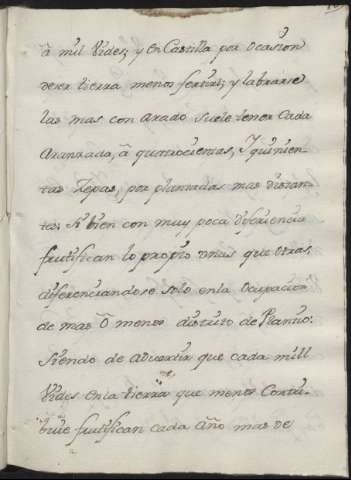 â mil Vides; y en Castilla por Ocasion
deser tierra menos fertil; y labrarse
las mas con arado suele tener Cada
Aranzada, â quatrocientas, I quinien-
tas Zepas, por plantadas mas distan-
tes; si bien con muy poca diferiencia
frutifican lo proprio unas que otras,
diferenciandose solo enla Ocupacion
de mas ô menos distrito de Plantio:
Siendo de Advertir que cada mill
Vides enla tierra que menos Contri-
buie frutifican cada año mas de